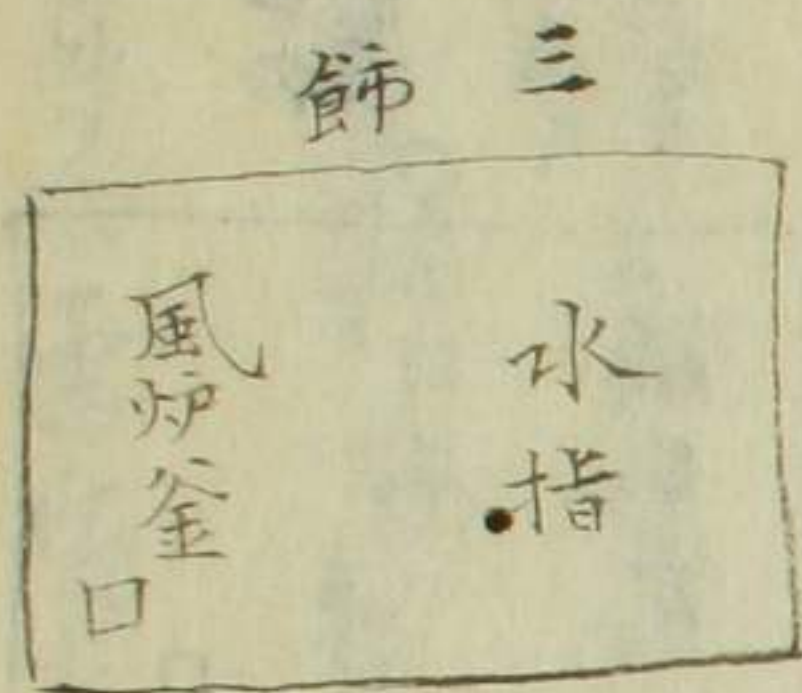 三飾
水指
風炉釜
口